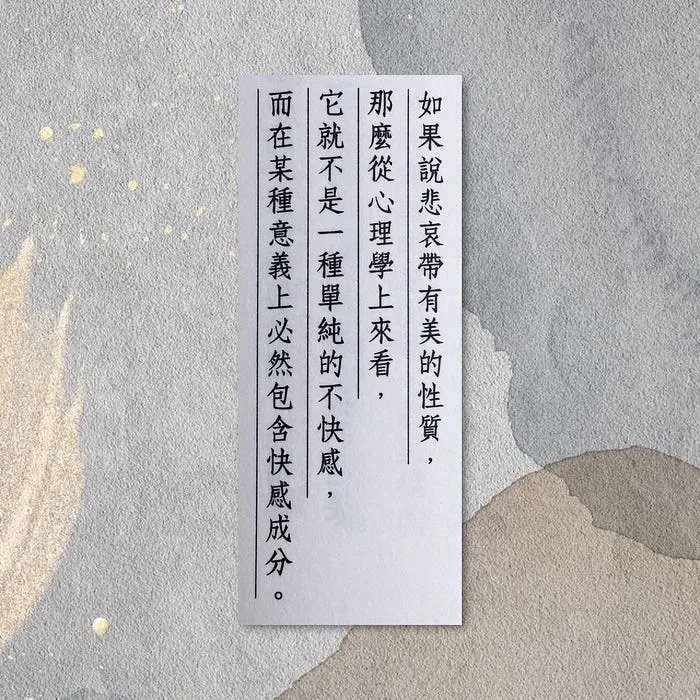 如果說悲哀帶有美的性質，
那麼從心理學上來看，
它就不是一種單純的不快感，
而在某種意義上必然包含快感成分。